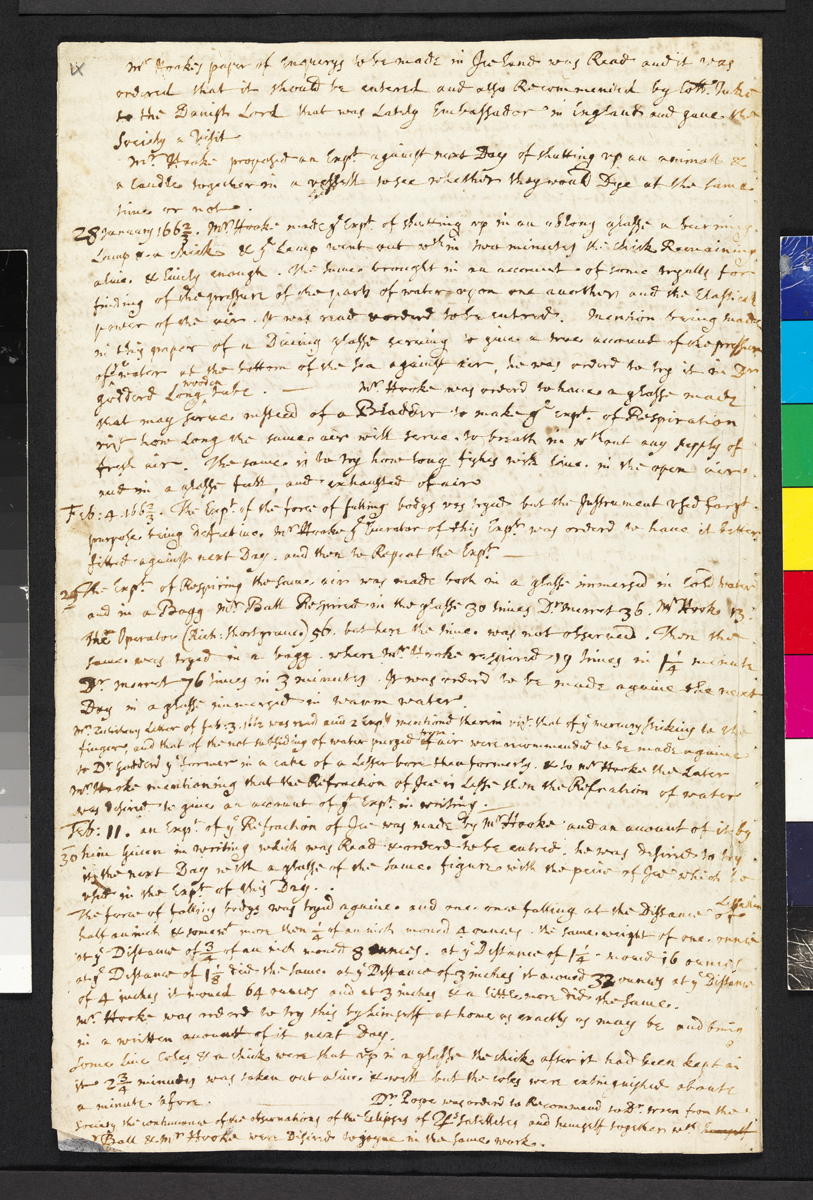 ix
Mr. Hookes paper of Enquirys to be made in Iceland was Read and it was
ordered that it should be entered and also Recommended by Coll. Tuke
to the Danish Lord that was Lately Embassador in England and gave the
Society a Visit
Mr. Hooke proposed an Expt. against next Day of shutting up an animall &
a Candle together in a vessell to see whether they would Dye at the same
time or not.
28 January 1662/3. Mr. Hooke made ye Expt. of shutting up in an oblong glasse a burning
Lamp & a Chick & ye Lamp went out wth in two minutes the chick Remaining
alive & Lively enough. The same brought in an account of some tryalls for
finding of the pressure of the parts of water upon one another and the Elasticall
power of the air. It was read & orderd to be entred. Mention being made
in this paper of a Diving glasse serving to give a true account of the pressure
of ye water at the bottom of the sea against air, he was orderd to try it in Dr
godderd Long wooden Tube. — Mr. Hooke was orderd to have a glasse made
that may serve instead of a Bladder to make ye Expt. of Respiration
viz how Long the same air will serve to breath in wthout any supply of
fresh air. The same is to try how long fishes will live in the open air
and in a glasse full, and exhausted of air
Feb: 4. 1662/3. The Expt. of the force of falling bodys was tryed but the Instrument used for yt
purpose being defective Mr. Hooke ye Curator of this Expt. was orderd to have it better
fitted against next Day. and then to Repeat the Expt. —
29 The Expt. of Respiring the same air was made both in a glasse immersed in Cold water
and in a Bagg Mr. Ball Respired in the glasse 30 times Dr. merret 36. Mr Hooke 13
The Operator (Rich: Shortgrave) 56. but here the time was not observed. Then the
same was tryed in a bagg. where Mr. Hooke respired 19 times in 1 1/4 minute
Dr. merret 76 times in 3 minutes. It was orderd to be made againe the next
Day in a glasse immersed in warm water.
Letter of Feb. 3. 1662 was read and 2 Expts mentiond therin vizt. that of ye mercury sticking to the
fingers, and that of the not subsiding of water purged from air were recommended to be made againe
to Dr. Godderd ye former in a case of a Letter bore then formerly. & to Mr Hooke the Later
Mr. Hooke mentioning that the Refraction of Ice is Lesse then the Refraction of water
was desired to give an account of yt Expt. in writing.
Feb: 11. an Expt. of ye Refraction of Ice was made by Mr Hooke and an account of it by
30 him given in writing which was Read & orderd to be entred. he was desired to try
it the next Day with a glasse of the same figure with the peice of Ice which he
used in the Expt. of this Day.
The force of falling bodys was tryd againe. and one once falling at the Distance of Lesse then
half an inch & somewt more then 1/4 of an inch moved 4 ounces. the same weight of one ounce
at ye Distance of 3/4 of an inch moved 8 ounces. at ye Distance of 1 1/4 moved 16 ounces
at ye Distance of 1 1/8 did the same. at ye Distance of 3 inches it moved 32 ounces at ye Distance
of 4 inches it moved 64 ounces and at 3 inches & a little more did the same.
Mr. Hooke was orderd to try this by himself at home as exactly as may be and bring
in a written account of it next Day.
Some Live Coles & a chick were shut up in a glasse the chick after it had been kept in
it 2 3/4 minutes was taken out alive & well but the coles were extinguished about
a minute before. Dr. Pope was orderd to Recommend to Dr. wren from the
Society the continuance of the observations of the Eclipses of ♃s Satellites and himself together wth
Ball & Mr Hooke were Desired to joyne in the same work.